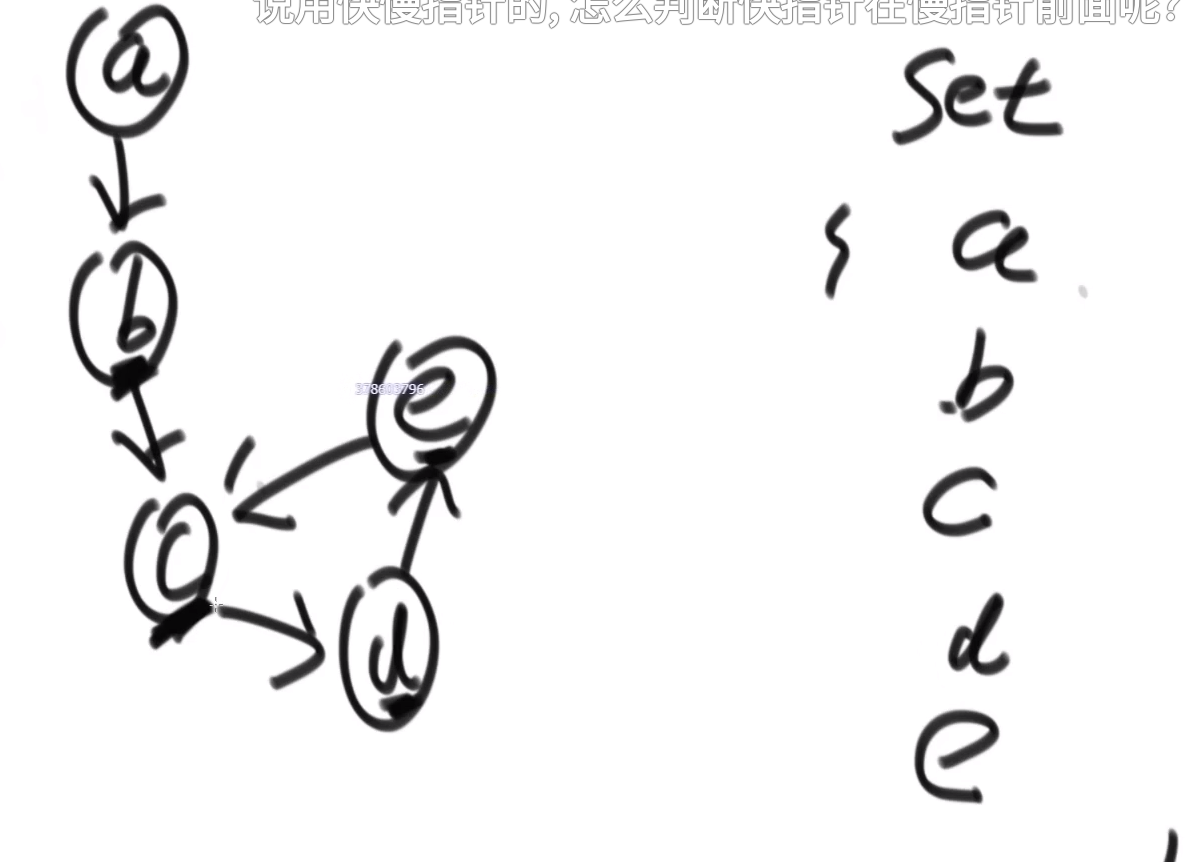 说用快慢指针的, 怎么判断快指针在慢指针前面呢?
a
b
c
d
e
378608796
set
{ a
b
c
d
e